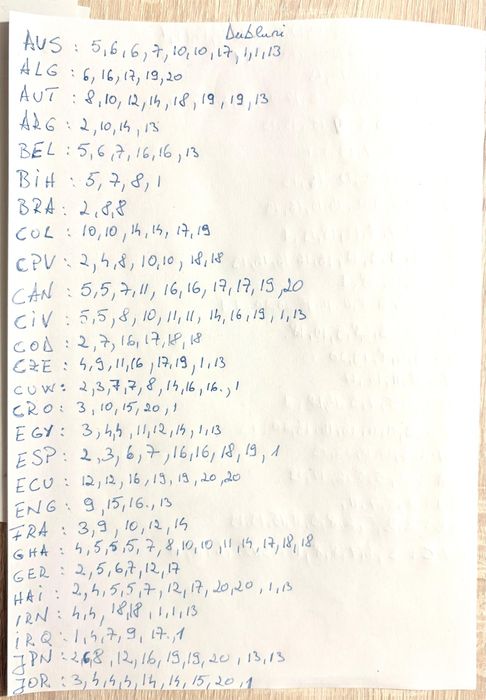 Dubluri
AUS : 5,6,6,7,10,10,17,1,1,13
ALG : 6,16,17,19,20
AUT : 8,10,12,14,18,19,19,13
ARG : 2,10,14,13
BEL : 5,6,7,16,16,13
BiH : 5,7,8,1
BRA : 2,8,8
COL : 10,10,14,14,17,19
CPV : 2,4,8,10,10,18,18
CAN : 5,5,7,11,16,16,17,17,19,20
CiV : 5,5,8,10,11,11,14,16,19,1,13
COD : 2,7,16,17,18,18
CZE : 4,9,11,16,17,19,1,13
CUW : 2,3,7,7,8,14,16,16.,1
CRO : 3,10,15,20,1
EGY : 3,4,4,11,12,14,1,13
ESP : 2,3,6,7,16,16,18,19,1
ECU : 12,12,16,19,19,20,20
ENG : 9,15,16.,13
FRA : 3,9,10,12,14
GHA : 4,5,5,5,7,8,10,10,11,14,17,18,18
GER : 2,5,6,7,12,17
HAi : 2,4,5,5,7,12,17,20,20,1,13
iRN : 4,4,18,18,1,1,13
iRQ : 1,4,7,9,17.1
JPN : 2,6,8,12,16,19,19,20,13,13
JOR : 3,4,4,4,14,14,15,20,1